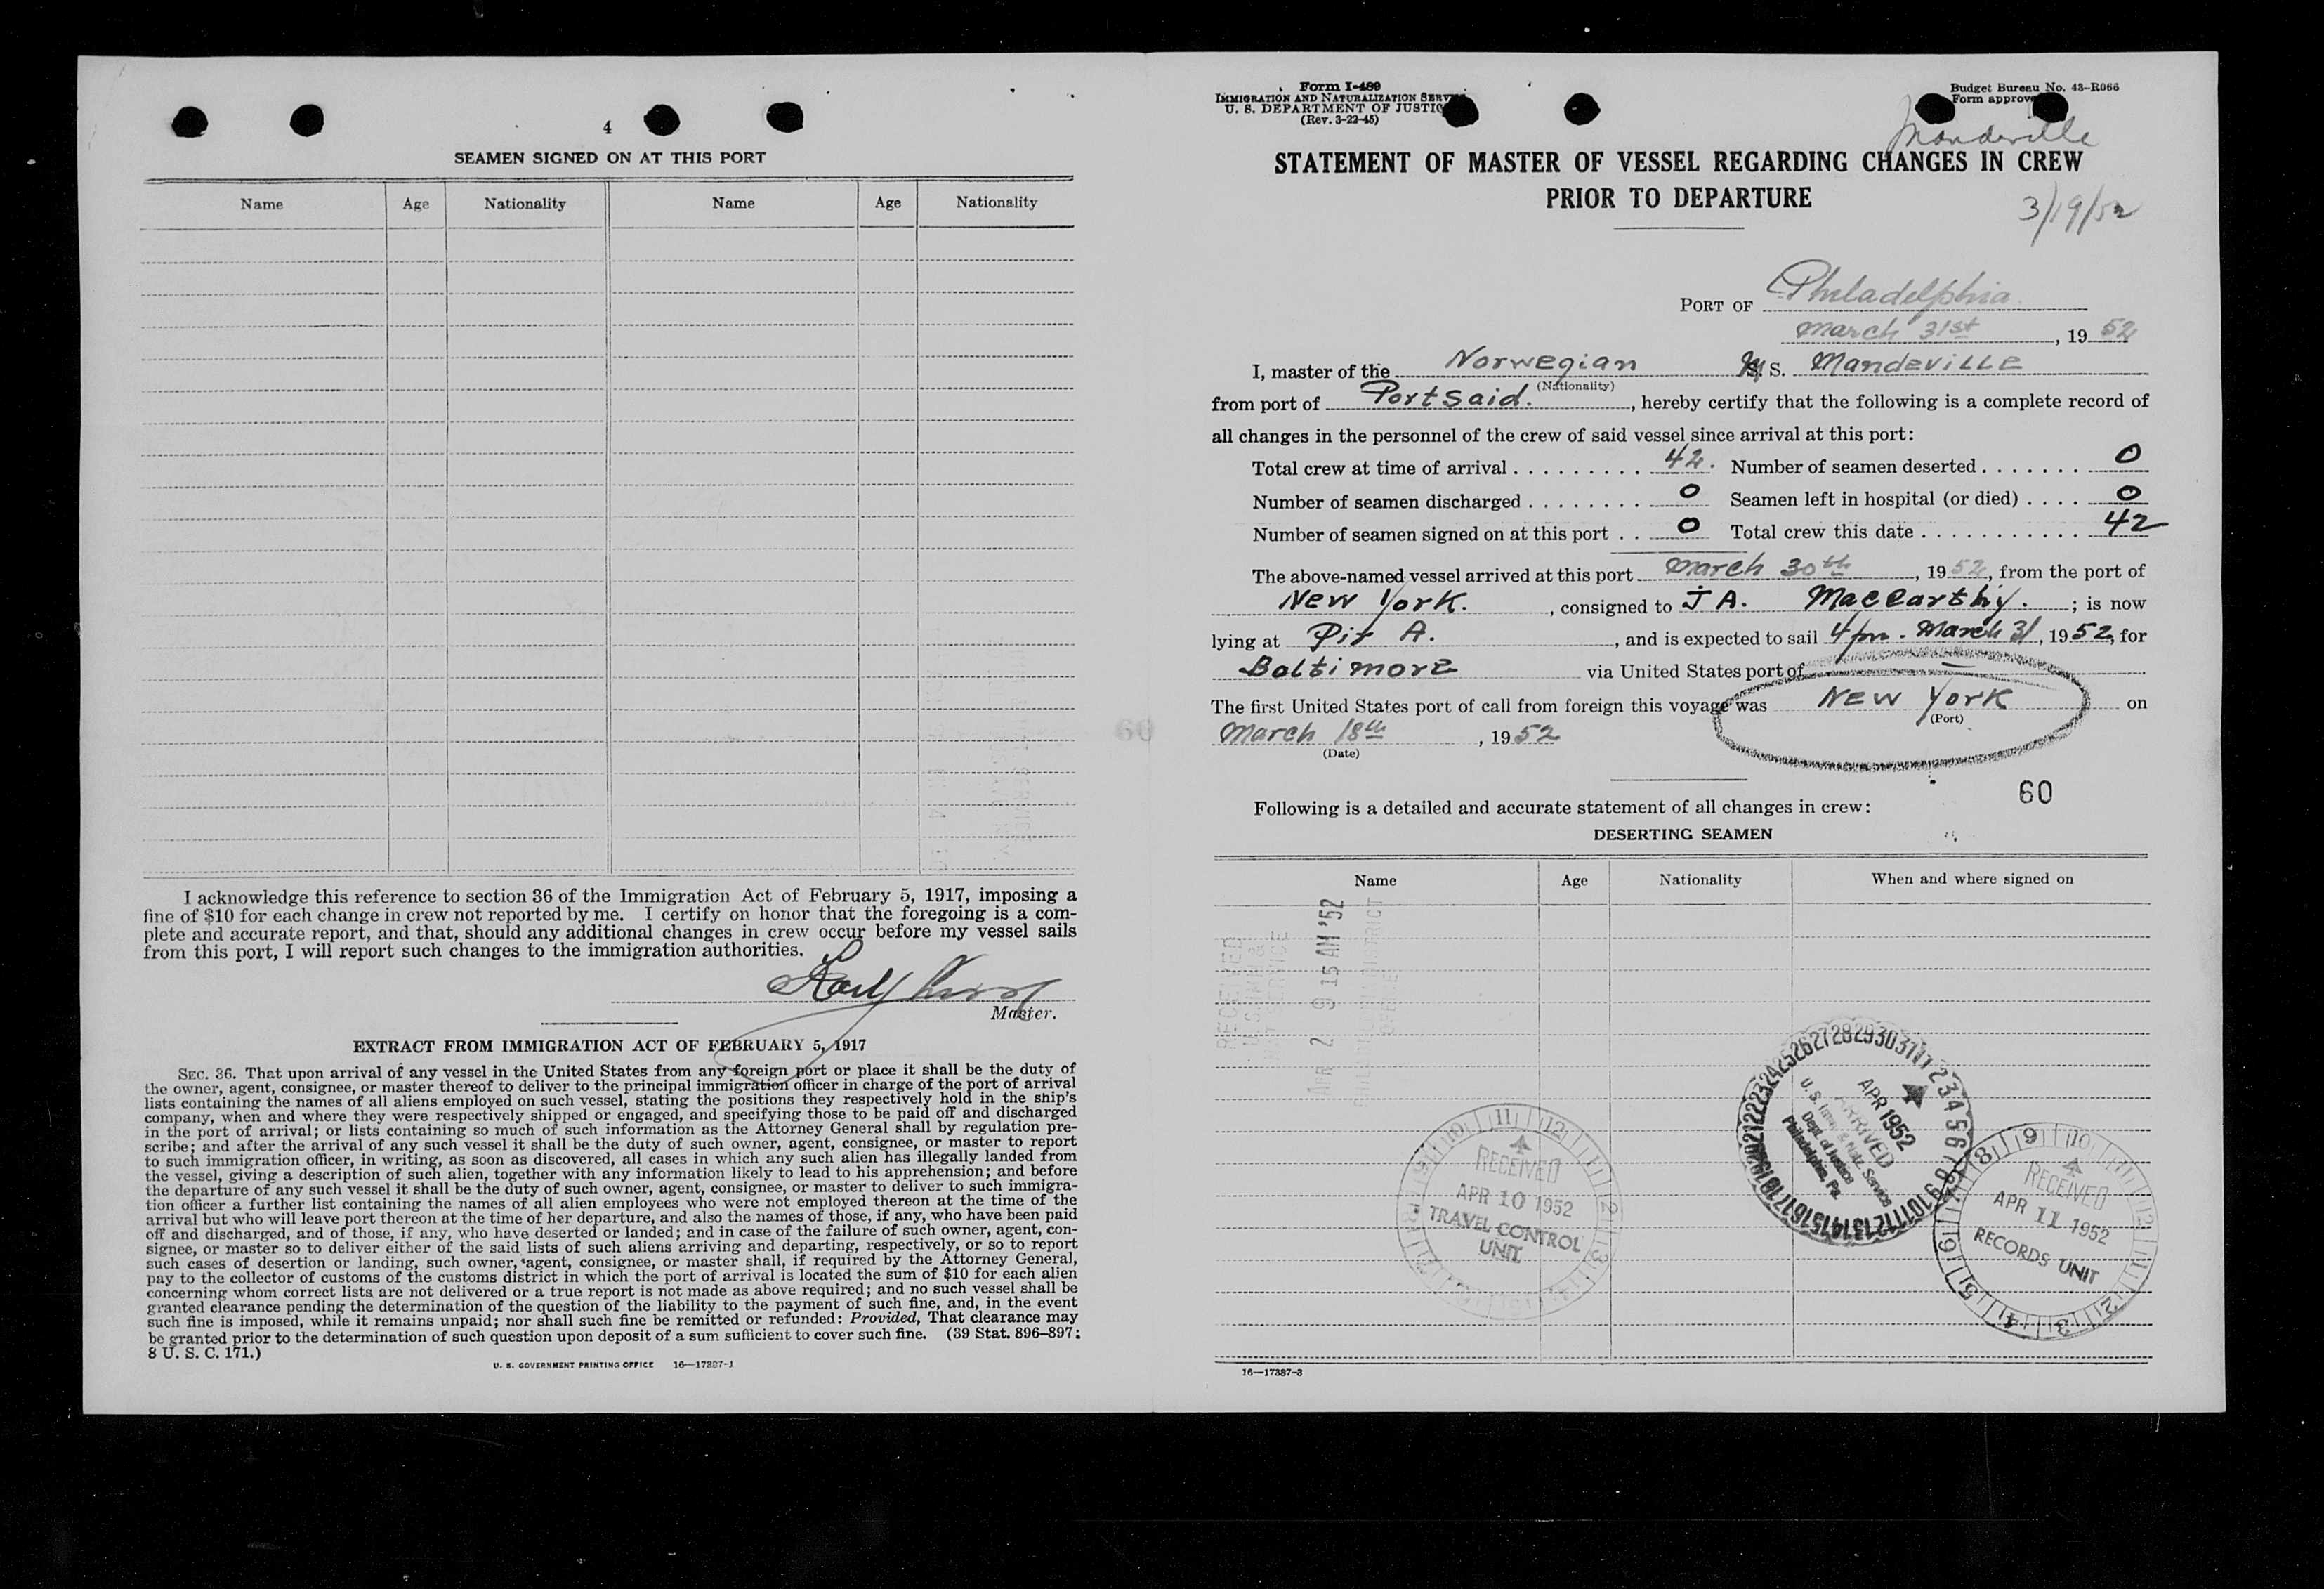 4
SEAMEN SIGNED ON AT THIS PORT
Name Age Nationality Name Age Nationality
I acknowledge this reference to section 36 of the Immigration Act of February 5, 1917, imposing a
fine of $10 for each change in crew not reported by me. I certify on honor that the foregoing is a com-
plete and accurate report, and that, should any additional changes in crew occur before my vessel sails
from this port, I will report such changes to the immigration authorities.
Master.
EXTRACT FROM IMMIGRATION ACT OF FEBRUARY 5, 1917
SEC. 36. That upon arrival of any vessel in the United States from any foreign port or place it shall be the duty of
the owner, agent, consignee, or master thereof to deliver to the principal immigration officer in charge of the port of arrival
lists containing the names of all aliens employed on such vessel, stating the positions they respectively hold in the ship's
company, when and where they were respectively shipped or engaged, and specifying those to be paid off and discharged
in the port of arrival; or lists containing so much of such information as the Attorney General shall by regulation pre-
scribe; and after the arrival of any such vessel it shall be the duty of such owner, agent, consignee, or master to report
to such immigration officer, in writing, as soon as discovered, all cases in which any such alien has illegally landed from
the vessel, giving a description of such alien, together with any information likely to lead to his apprehension; and before
the departure of any such vessel it shall be the duty of such owner, agent, consignee, or master to deliver to such immigra-
tion officer a further list containing the names of all alien employees who were not employed thereon at the time of the
arrival but who will leave port thereon at the time of her departure, and also the names of those, if any, who have been paid
off and discharged, and of those, if any, who have deserted or landed; and in case of the failure of such owner, agent, con-
signee, or master so to deliver either of the said lists of such aliens arriving and departing, respectively, or so to report
such cases of desertion or landing, such owner, agent, consignee, or master shall, if required by the Attorney General,
pay to the collector of customs of the customs district in which the port of arrival is located the sum of $10 for each alien
concerning whom correct lists are not delivered or a true report is not made as above required; and no such vessel shall be
granted clearance pending the determination of the question of the liability to the payment of such fine, and, in the event
such fine is imposed, while it remains unpaid; nor shall such fine be remitted or refunded: Provided, That clearance may
be granted prior to the determination of such question upon deposit of a sum sufficient to cover such fine. (39 Stat. 896–897;
8 U. S. C. 171.)
U. S. GOVERNMENT PRINTING OFFICE 16—17387-1
Form I-489
IMMIGRATION AND NATURALIZATION SERV
U. S. DEPARTMENT OF JUSTIC
(Rev. 3-22-45)
Budget Bureau No. 43-R066
Form approve
Mandeville
STATEMENT OF MASTER OF VESSEL REGARDING CHANGES IN CREW
PRIOR TO DEPARTURE
3/19/52
PORT OF Philadelphia
March 31st, 19 52
I, master of the Norwegian M S. Mandeville
(Nationality)
from port of Port Said., hereby certify that the following is a complete record of
all changes in the personnel of the crew of said vessel since arrival at this port:
Total crew at time of arrival 42. Number of seamen deserted 0
Number of seamen discharged 0 Seamen left in hospital (or died) 0
Number of seamen signed on at this port 0 Total crew this date 42
The above-named vessel arrived at this port March 30th, 19 52, from the port of
New York., consigned to J A. MacCarthy.; is now
lying at Pir A., and is expected to sail 4 pm. March 31, 19 52, for
Baltimore via United States port of
The first United States port of call from foreign this voyage was New York on
(Port)
March 18th, 19 52
(Date)
60
Following is a detailed and accurate statement of all changes in crew:
DESERTING SEAMEN
Name Age Nationality When and where signed on
RECEIVED
APR 2 9 15 AM '52
RECEIVED
APR 10 1952
TRAVEL CONTROL
UNIT
APR 1952
ARRIVED
U. S. Immig. & Natz. Service
Dept. of Justice
Philadelphia, Pa.
RECEIVED
APR 11 1952
RECORDS UNIT
16—17387-3